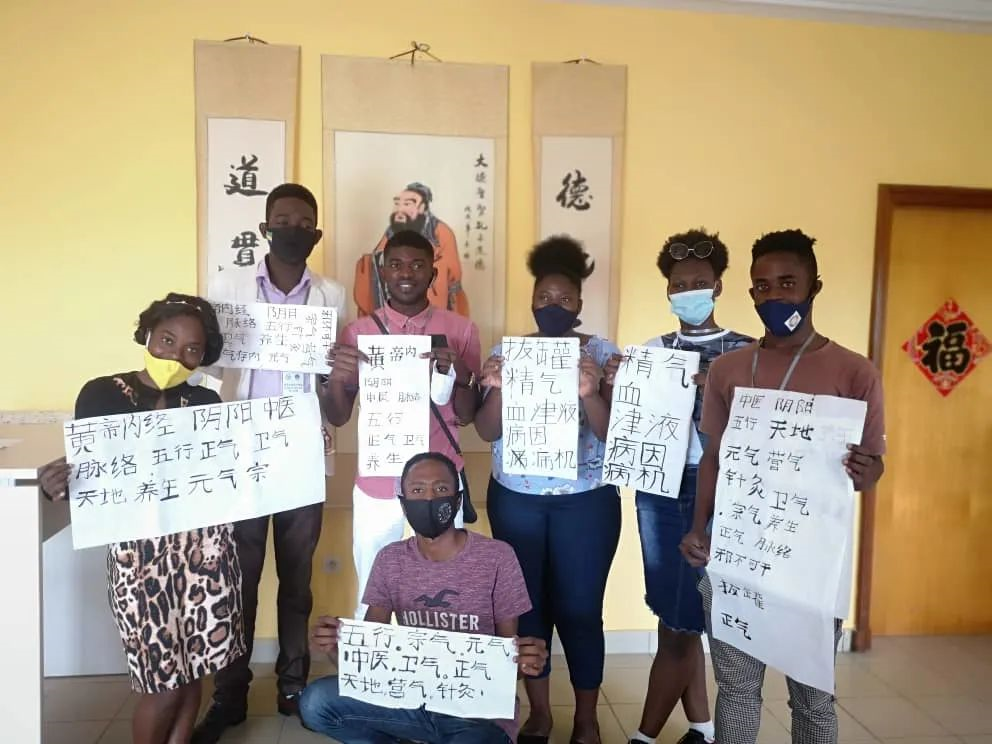 道
貫
大德至聖孔子
德
阴阳
脉络 五行
卫气 养生
元气
黄帝内
阴阳
中医 脉络
五行
正气 卫气
养生
拔罐
精气
血津液
病因
病机
精气
血
津液
病因
病机
黄帝内经 阴阳 中医
脉络 五行 正气 卫气
天地 养生 元气 宗
中医 阴阳
五行 天地
元气 营气
针灸 卫气
宗气 养生
正气 脉络
邪不可干
拔罐
正气
HOLLISTER
五行。宗气。元气
中医。卫气。正气
天地。营气。针灸。
福